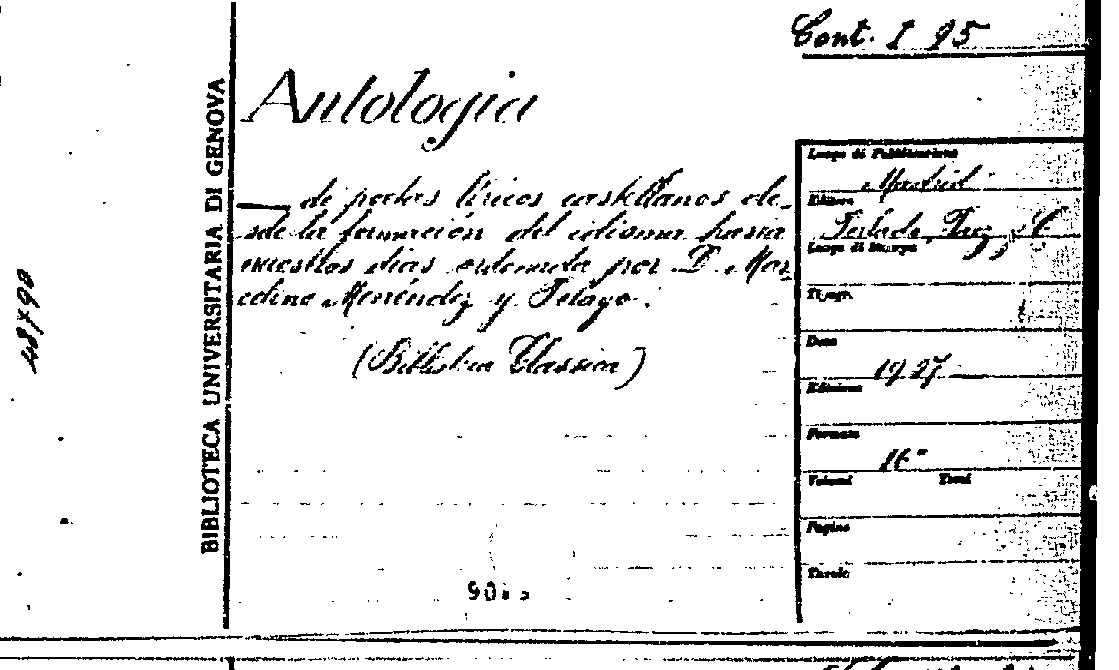 Cont. I 95
Antologia
— de poetas liricos castellanos de-
sde la formación del idioma hasta
nuestros dias ordenada por D. Mar
celino Menéndez y Pelayo.
(Biblioteca Classica)
BIBLIOTECA UNIVERSITARIA DI GENOVA
Luogo di Pubblicazione
Madrid
Editore
Perlado, Paez y C
Luogo di Stampa
Tipogr.
Data
1927
Edizione
Formato
16°
Volumi Tomi
Pagine
Tavole